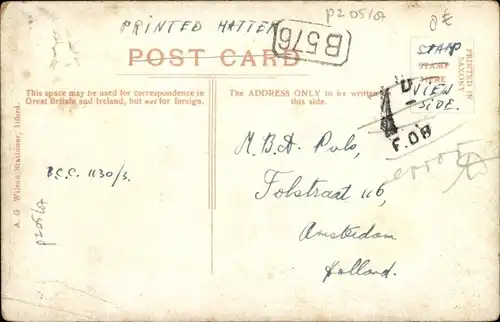 PRINTED MATTER
p205/07
8€
B576
POST CARD
STAMP
STAMP
HERE
VIEW
SIDE.
PRINTED IN
SAXONY
This space may be used for correspondence in
Great Britain and Ireland, but not for foreign.
The ADDRESS ONLY to be written
this side.
1 D
F.O.B
M.B.A. Polo,
Folstraat 116,
Amsterdam
Holland.
B.C.C. 1130/3.
p205/07
A. G. Wilson, Stationer, Ilford.